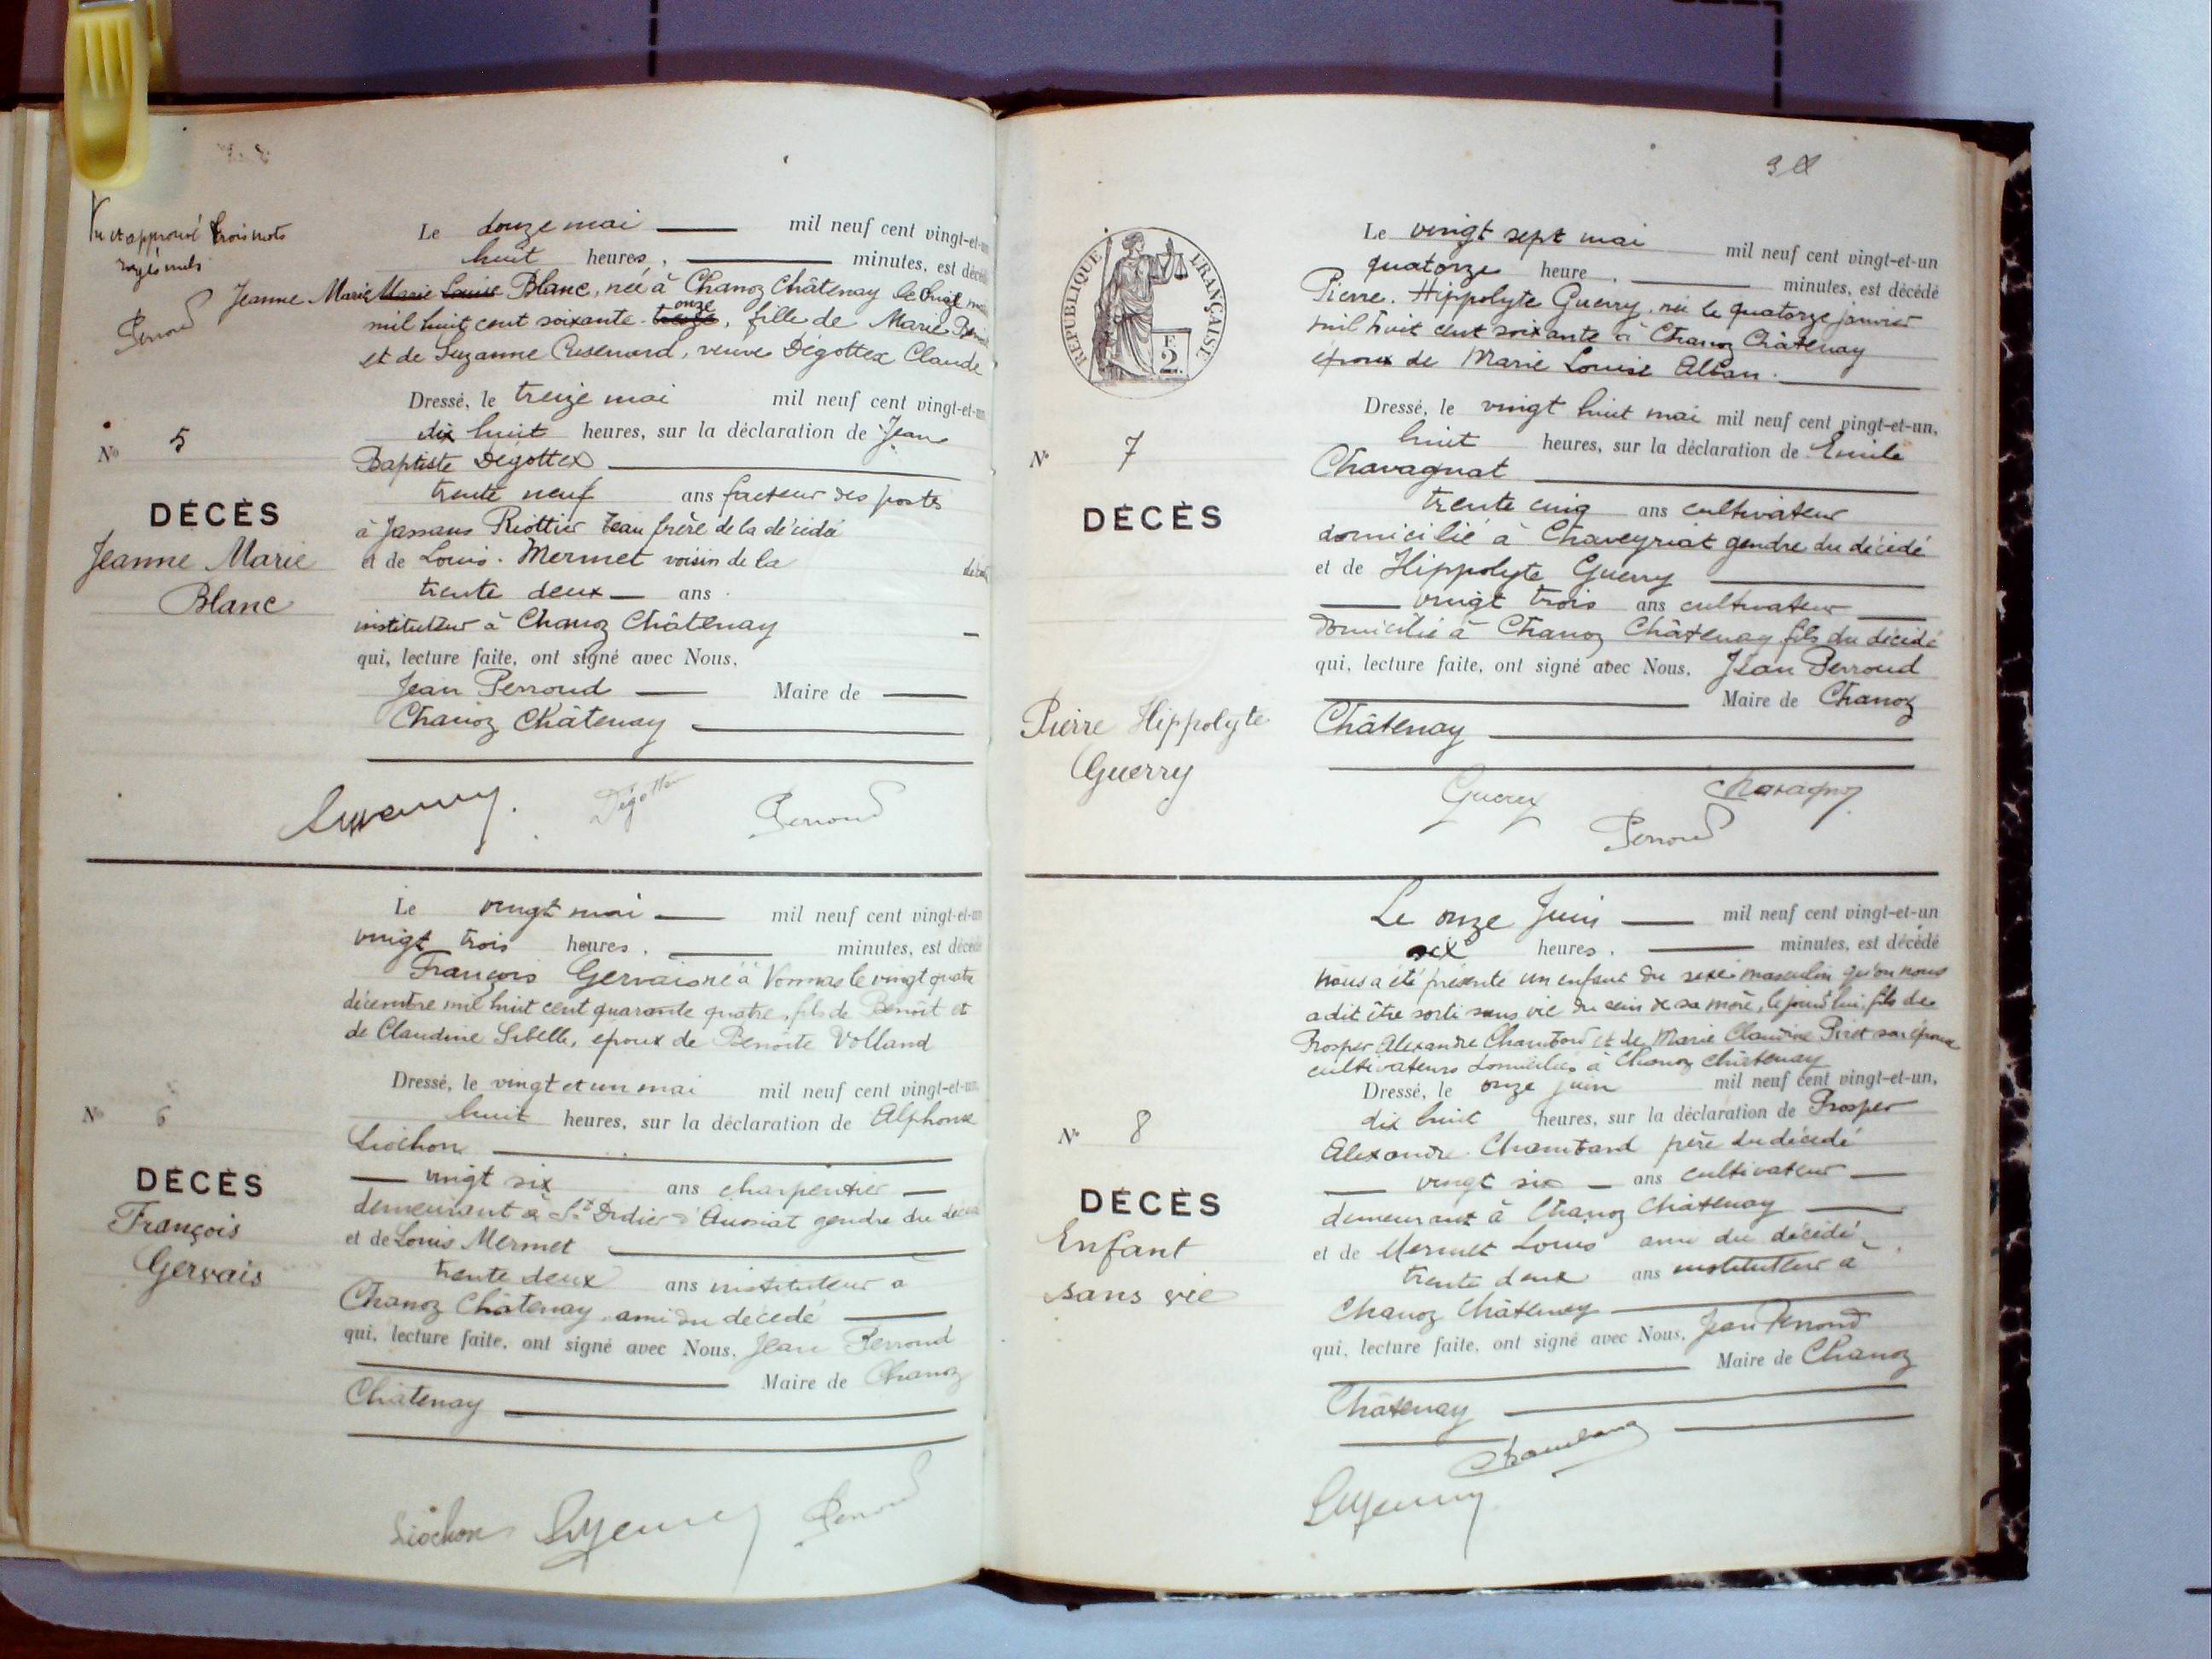 Vu et approuvé trois mots
rayés nuls
Perroud
Le douze mai mil neuf cent vingt-et-un
huit heures, minutes, est décédée
Jeanne Marie Marie Louise Blanc, née à Chanoz Châtenay le
onze
mil huit cent soixante treize, fille de Marie
et de Suzanne, veuve Dégottex Claude
Dressé, le treize mai mil neuf cent vingt-et-un
dix huit heures, sur la déclaration de Jean
Baptiste Degottex
trente neuf ans facteur des postes
à Jassans Riottier beau frère de la décédée
et de Louis Mermet voisin de la
trente deux ans
instituteur à Chanoz Châtenay
qui, lecture faite, ont signé avec Nous,
Jean Perroud Maire de
Chanoz Châtenay
Dégottex Perroud
No 5
DÉCÈS
Jeanne Marie
Blanc
Le vingt mai mil neuf cent vingt-et-un
vingt trois heures, minutes, est décédé
François Gervais né à Vonnas le vingt quatre
décembre mil huit cent quarante quatre, fils de Benoît et
de Claudine Sibelle, époux de Benoite Volland
Dressé, le vingt et un mai mil neuf cent vingt-et-un
huit heures, sur la déclaration de Alphonse
Liochon
vingt six ans charpentier
demeurant à St Didier d'Aussiat gendre du décédé
et de Louis Mermet
trente deux ans instituteur à
Chanoz Châtenay ami du décédé
qui, lecture faite, ont signé avec Nous, Jean Perroud
Maire de Chanoz
Châtenay
Liochon Perroud
No 6
DÉCÈS
François
Gervais
RÉPUBLIQUE FRANÇAISE
F.
2.
Le vingt sept mai mil neuf cent vingt-et-un
quatorze heure, minutes, est décédé
Pierre Hippolyte Guerry, né le quatorze janvier
mil huit cent soixante à Chanoz Châtenay
époux de Marie Louise Alban.
Dressé, le vingt huit mai mil neuf cent vingt-et-un,
huit heures, sur la déclaration de Emile
Chavagnat
trente cinq ans cultivateur
domicilié à Chaveyriat gendre du décédé
et de Hippolyte Guerry
vingt trois ans cultivateur
domicilié à Chanoz Châtenay fils du décédé
qui, lecture faite, ont signé avec Nous, Jean Perroud
Maire de Chanoz
Châtenay
Guerry Chavagnat
Perroud
No 7
DÉCÈS
Pierre Hippolyte
Guerry
Le onze Juin mil neuf cent vingt-et-un
six heures, minutes, est décédé
nous a été présenté un enfant du sexe masculin qu'on nous
a dit être sorti sans vie du sein de sa mère, le jourd'hui, fils de
Prosper Alexandre Chambard et de Marie Claudine Piret son épouse
cultivateurs domiciliés à Chanoz Châtenay
Dressé, le onze juin mil neuf cent vingt-et-un,
dix huit heures, sur la déclaration de Prosper
Alexandre Chambard père du décédé
vingt six ans cultivateur
demeurant à Chanoz Châtenay
et de Mermet Louis ami du décédé
trente deux ans instituteur à
Chanoz Châtenay
qui, lecture faite, ont signé avec Nous, Jean Perroud
Maire de Chanoz
Châtenay
Chambard
No 8
DÉCÈS
Enfant
sans vie